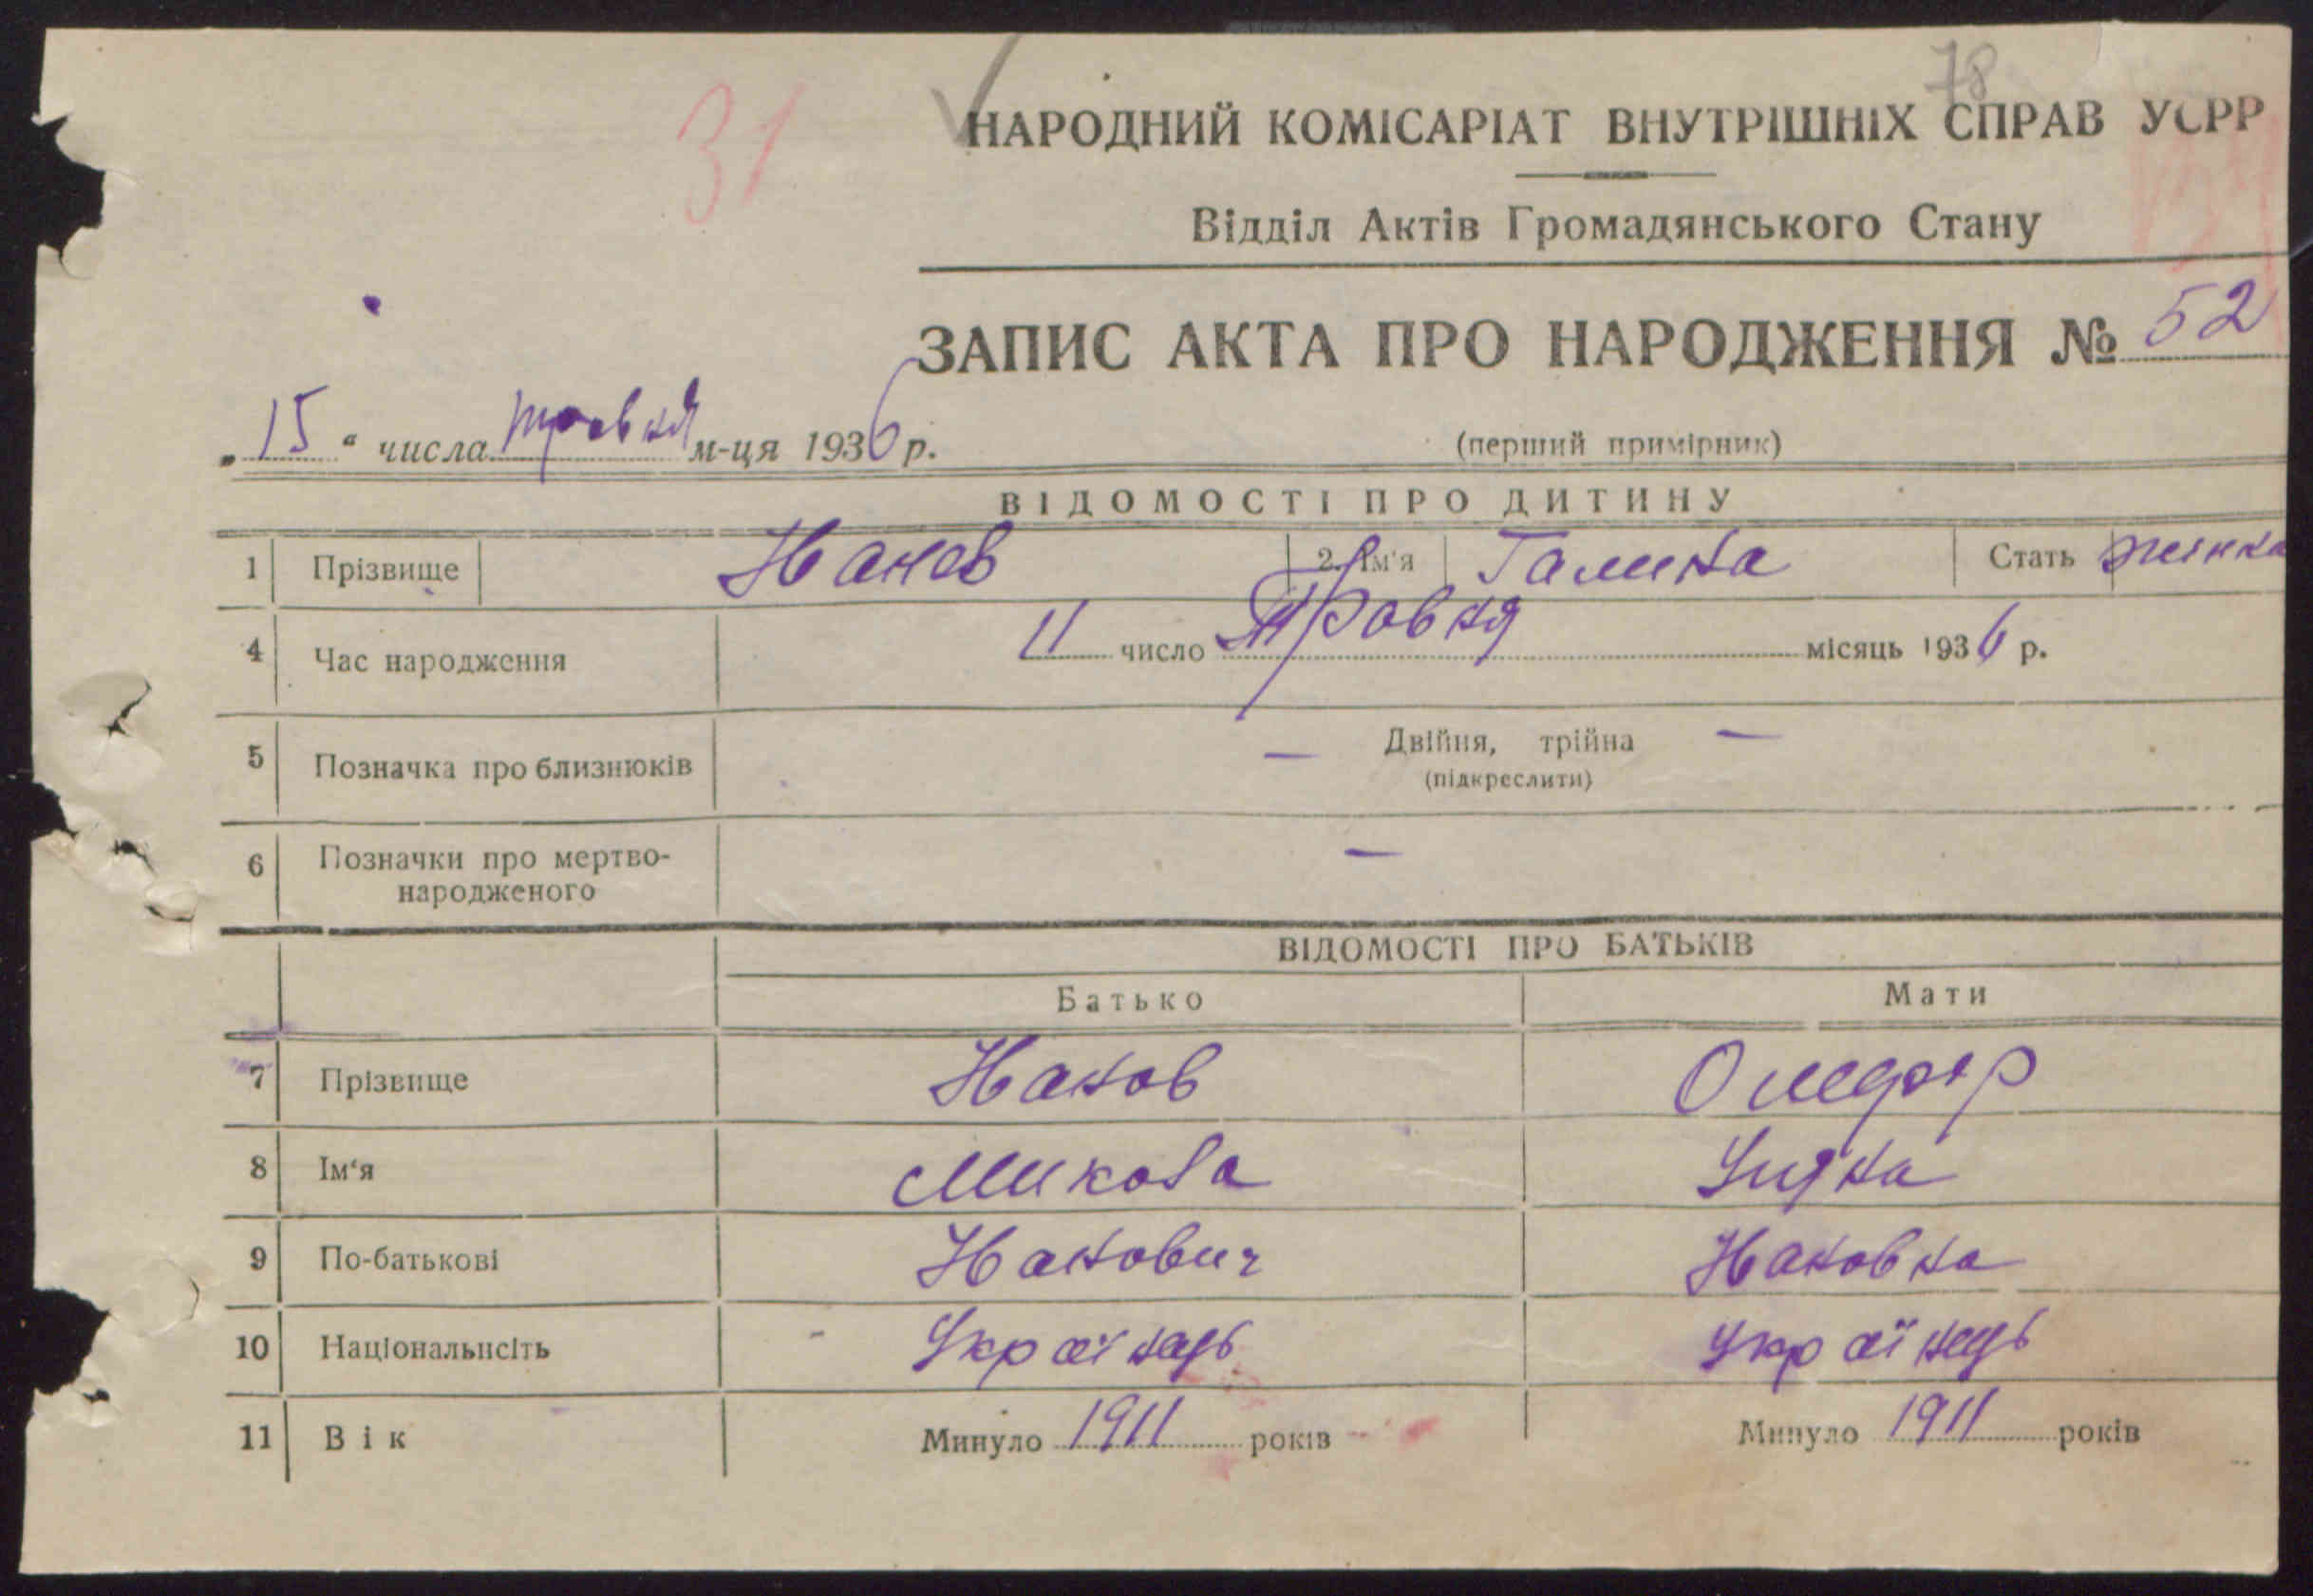 78
31
НАРОДНИЙ КОМІСАРІАТ ВНУТРІШНІХ СПРАВ УСРР
Відділ Актів Громадянського Стану
ЗАПИС АКТА ПРО НАРОДЖЕННЯ № 52
„15“ числа травня м-ця 1936 р.
(перший примірник)
ВІДОМОСТІ ПРО ДИТИНУ
1 Прізвище 2. Ім'я Галина Стать жінка
4 Час народження 11 число Травня місяць 1936 р.
5 Позначка про близнюків — Двійня, трійна —
(підкреслити)
6 Позначки про мертво-
народженого —
ВІДОМОСТІ ПРО БАТЬКІВ
Батько Мати
7 Прізвище
8 Ім'я Микола
9 По-батькові
10 Національнсіть Українець Українець
11 Вік Минуло 1911 років Минуло 1911 років